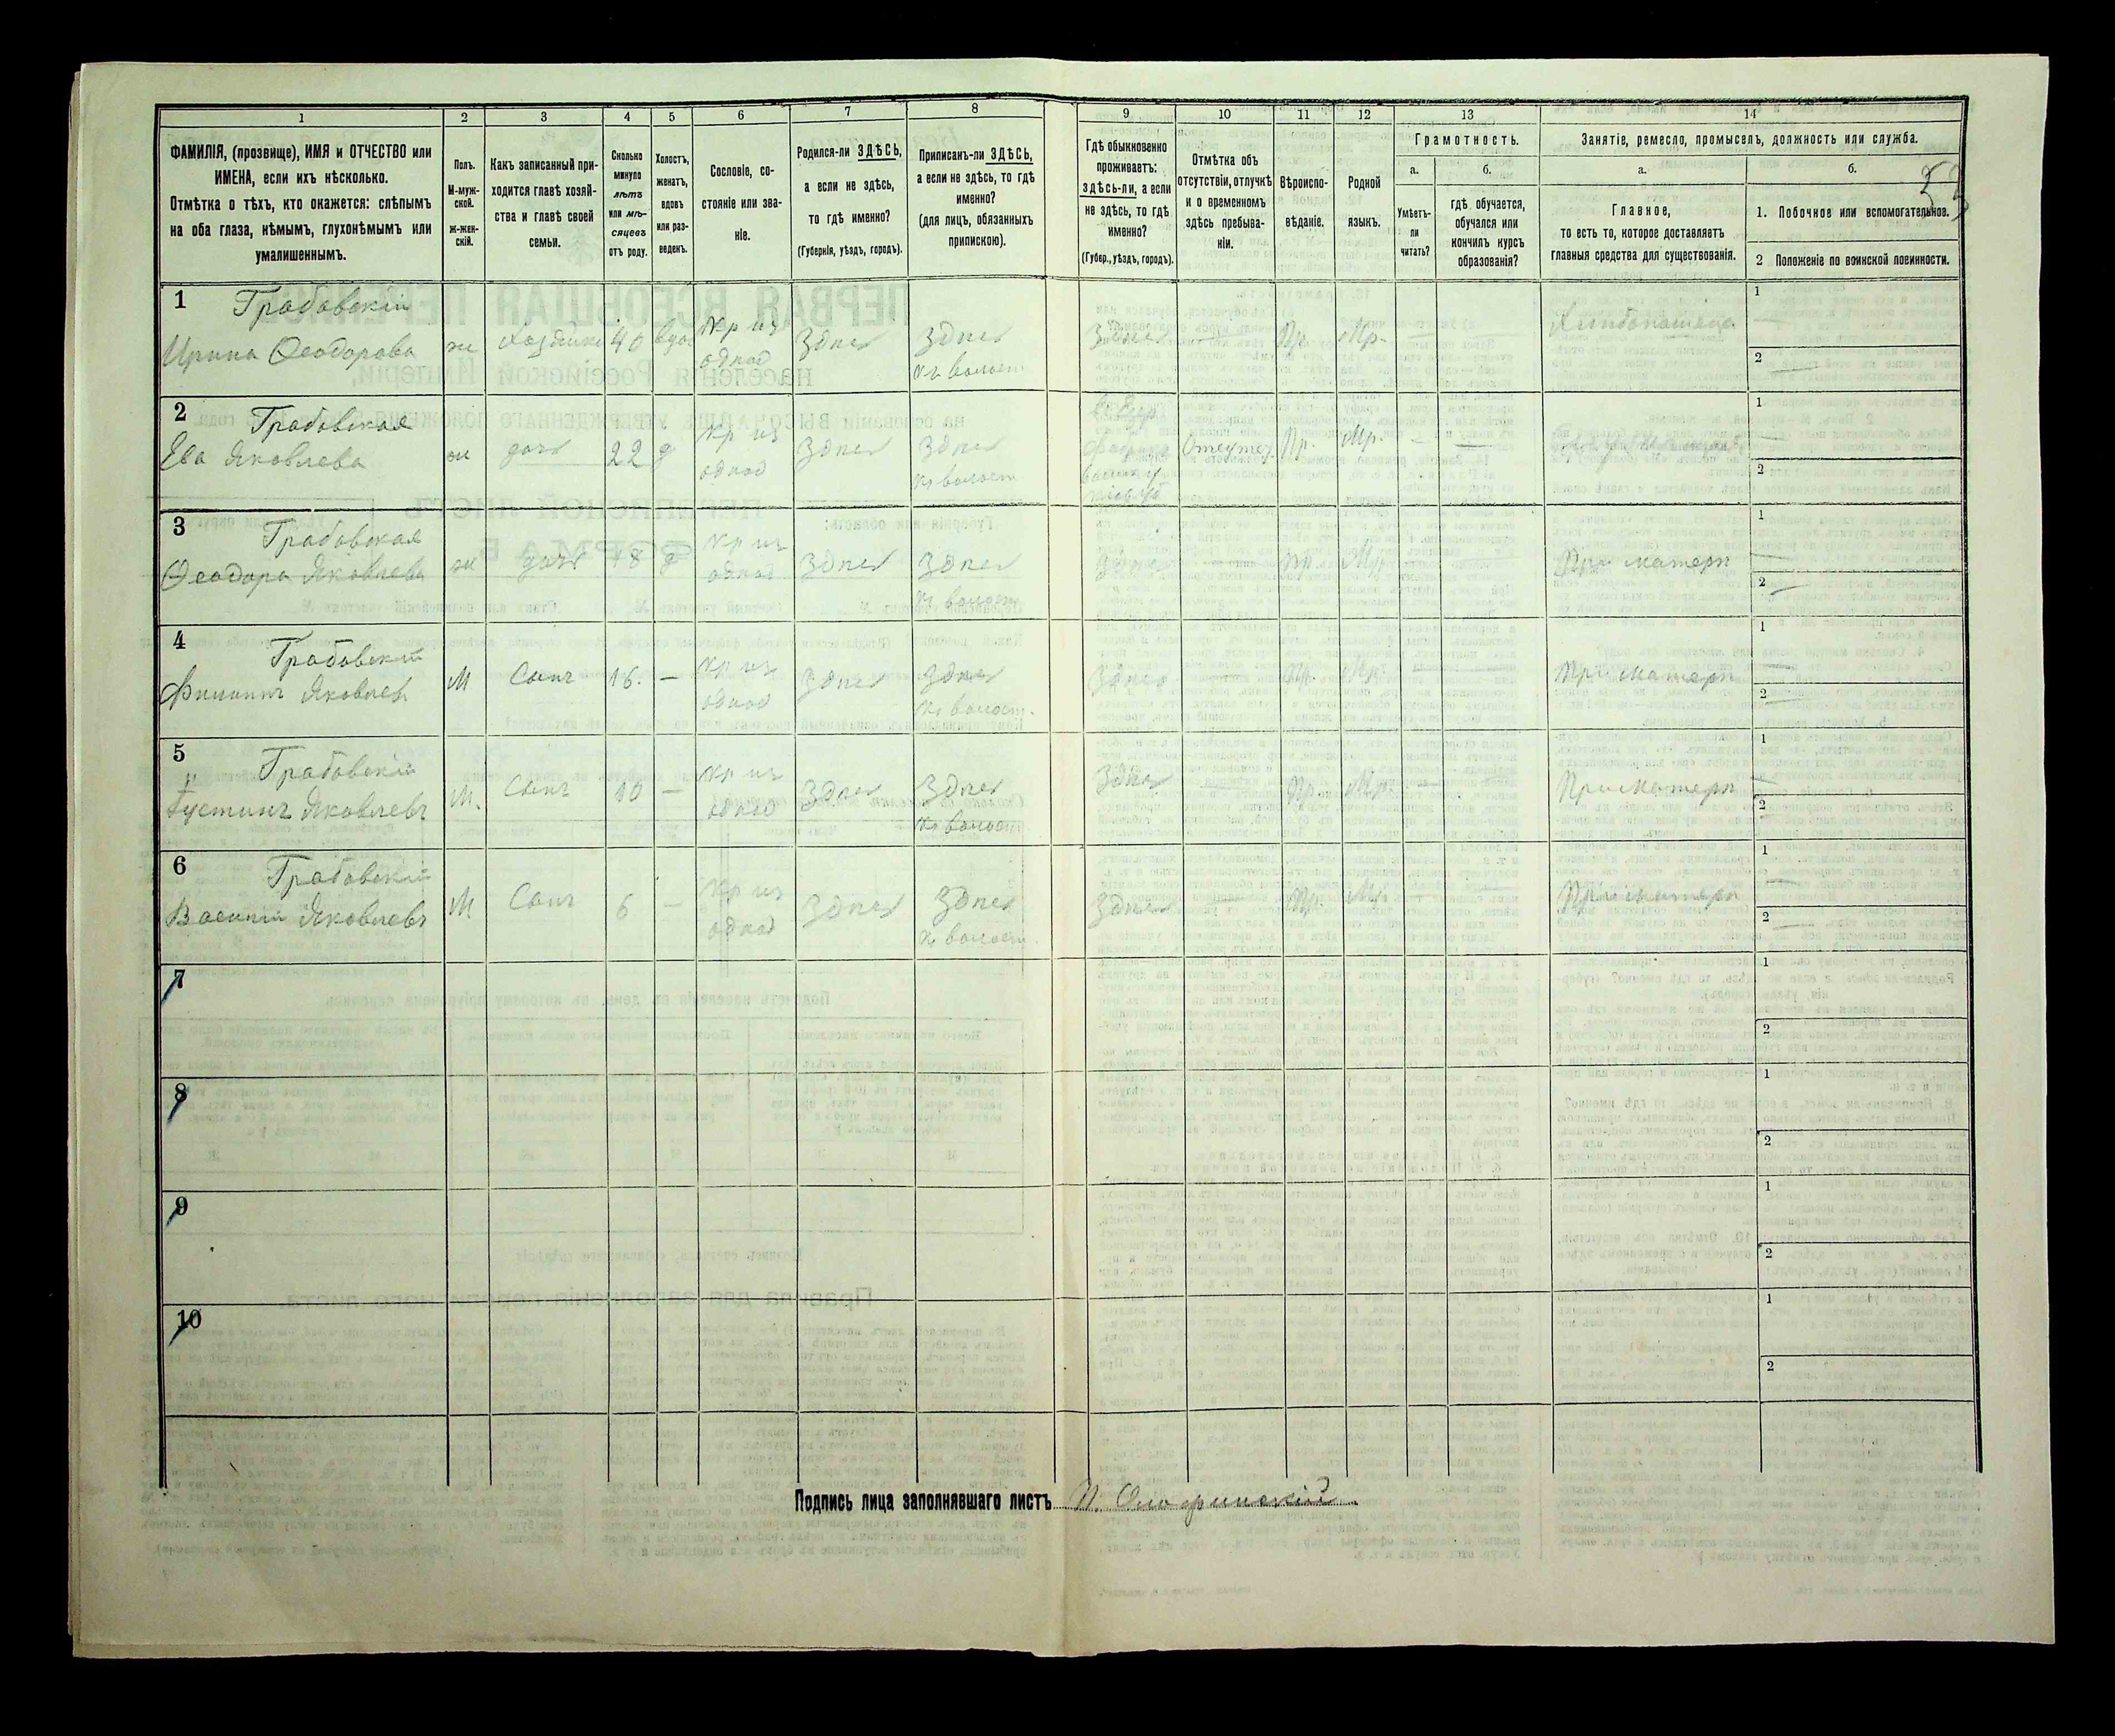 1
2
3
4
5
6
7
8
9
10
11
12
13
14
ФАМИЛІЯ, (прозвище), ИМЯ и ОТЧЕСТВО или
ИМЕНА, если ихъ нѣсколько.
Отмѣтка о тѣхъ, кто окажется: слѣпымъ
на оба глаза, нѣмымъ, глухонѣмымъ или
умалишеннымъ.
Полъ.
М-муж-
ской.
ж-жен-
скій.
Какъ записанный при-
ходится главѣ хозяй-
ства и главѣ своей
семьи.
Сколько
минуло
лѣтъ
или мѣ-
сяцевъ
отъ роду.
Холостъ,
женатъ,
вдовъ
или раз-
веденъ.
Сословіе, со-
стояніе или зва-
ніе.
Родился-ли ЗДѢСЬ,
а если не здѣсь,
то гдѣ именно?
(Губернія, уѣздъ, городъ).
Приписанъ-ли ЗДѢСЬ,
а если не здѣсь, то гдѣ
именно?
(для лицъ, обязанныхъ
припискою).
Гдѣ обыкновенно
проживаетъ:
здѣсь-ли, а если
не здѣсь, то гдѣ
именно?
(Губер., уѣздъ, городъ).
Отмѣтка объ
отсутствіи, отлучкѣ
и о временномъ
здѣсь пребыва-
ніи.
Вѣроиспо-
вѣданіе.
Родной
языкъ.
Грамотность.
а.
Умѣетъ-
ли
читать?
б.
гдѣ обучается,
обучался или
кончилъ курсъ
образованія?
Занятіе, ремесло, промыселъ, должность или служба.
а.
Главное,
то есть то, которое доставляетъ
главныя средства для существованія.
б.
1. Побочное или вспомогательное.
2 Положеніе по воинской повинности.
53
1 Грабовскій
Ирина Ѳеодорова
ж
Хозяйка
40
вдов
Кр из
однод
Здпсь
Здпсь
Кр волост
Здпсь
—
Пр.
Мр.
—
—
1 —
2 —
2 Грабовская
Ева Яковлева
ж
дочь
22
д
Кр из
однод
Здпсь
Здпсь
Кр волост
Пр.
Мр.
—
—
1 —
2
3 Грабовская
Ѳеодора Яковлева
ж
дочь
18
д
Кр из
однод
Здпсь
Здпсь
Кр волост
Здпсь
—
Пр
Мр
При матери
1 —
2 —
4 Грабовскій
Филиппъ Яковлев
М
Сынъ
16.
—
Кр из
однод
Здпсь
Здпсь
Кр волост.
Здпсь
Пр.
Мр.
При матери
1 —
2 —
5 Грабовскій
Густинъ Яковлевъ
М.
Сынъ
10
—
Кр из
однод
Здпсь
Здпсь
Кр волост
Здпсь
—
Пр.
Мр.
—
При матери
1 —
2 —
6 Грабовскій
Василій Яковлевъ
М
Сынъ
6
—
Кр из
однод
Здпсь
Здпсь
Кр волост.
Здпсь
Пр.
Мр.
При матери
1 —
2 —
7
1
2
8
1
2
9
1
2
10
1
2
Подпись лица заполнявшаго листъ